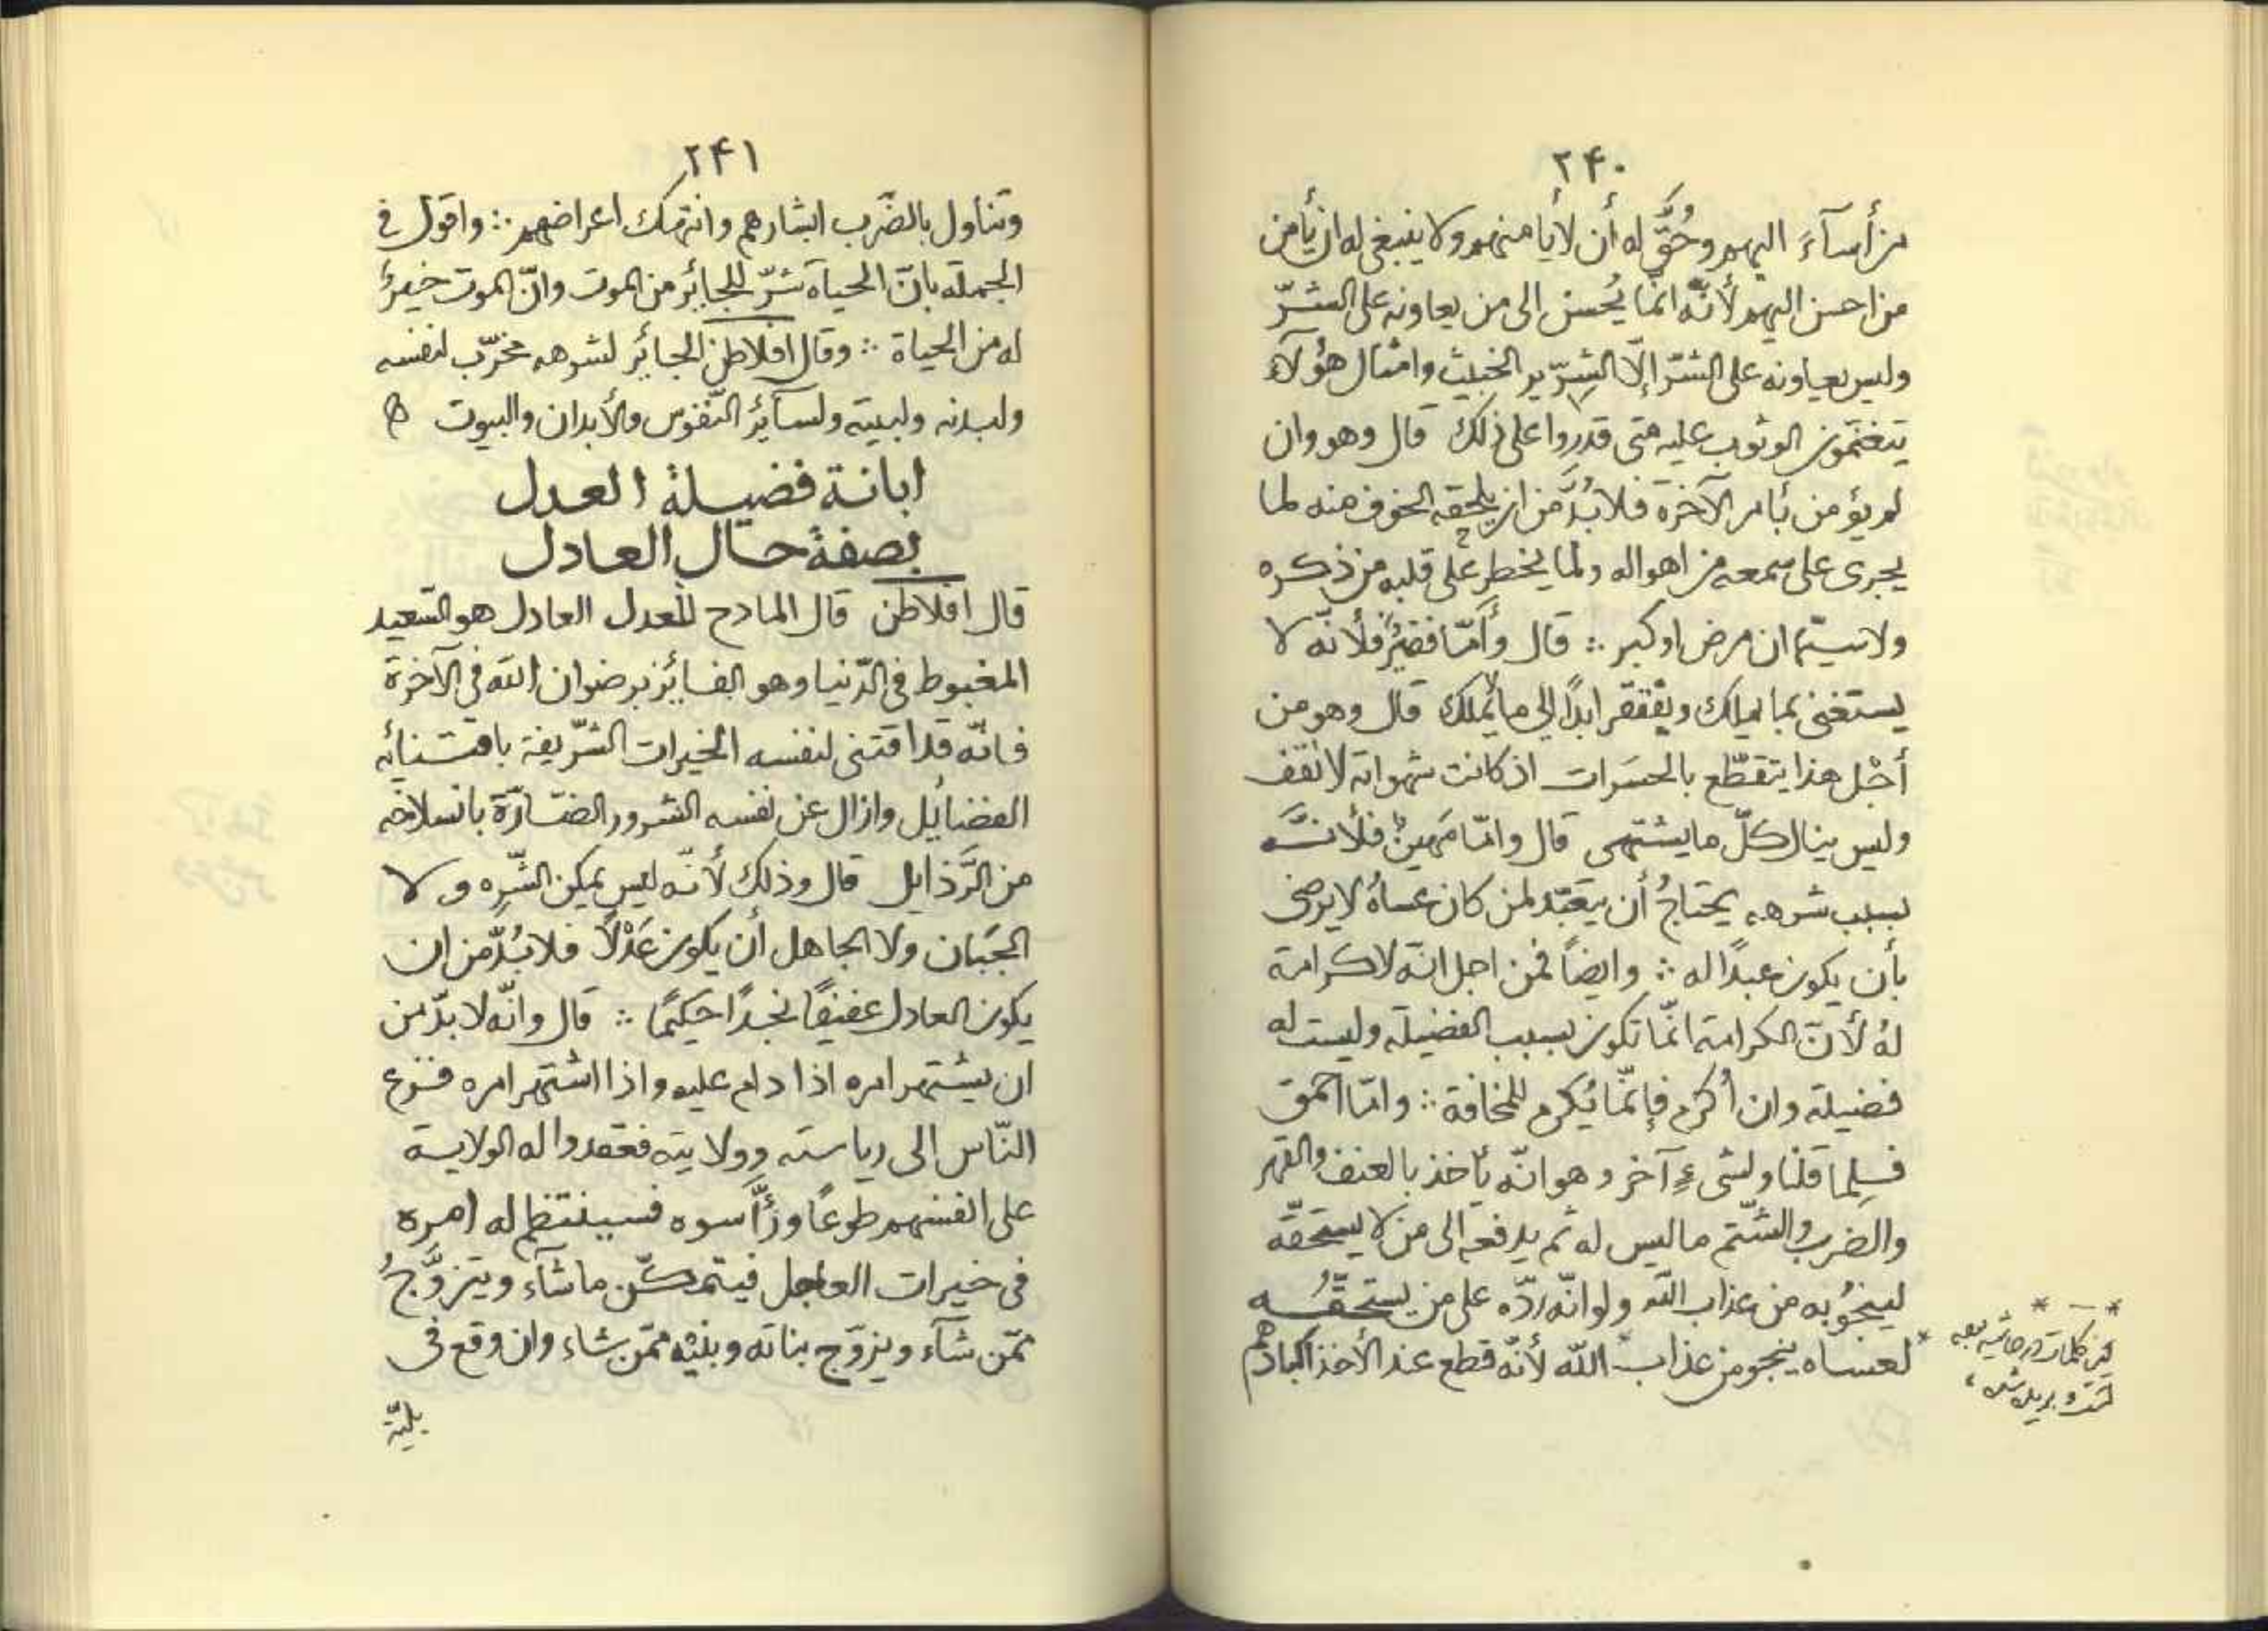 ۲۴۰
من أسآءَ اليهم وحُقَّ له أن لا يأمنهم ولا ينبغي له ان يأمن
من احسن اليهم لأنّه انّما يُحسن الى من يعاونه على الشرّ
وليس يعاونه على الشرّ إلّا الشِرّير الخبيث وامثال هؤلآء
يتغنّمون الوثوب عليه متى قدروا على ذلك قال وهو وان
لم يؤمن بأمر الآخرة فلا بُدَّ من ان يلحقه الخوف منه لما
يجرى على سمعه من اهواله ولما يخطر على قلبه من ذكره
ولا سيّما ان مرض او كبر ∴ قال وأمّا فقيرٌ فلأنّه لا
يستغنى بما يملك ويفتقر ابدًا الى ما لا يملك قال وهو من
أجْل هذا يتقطّع بالحسَرات اذ كانت شهواته لا تقف
وليس ينال كلّ ما يشتهى قال وامّا مَهينٌ فلأنَّه
بسبب شرهه يحتاجُ أن يتعبّد لمن كان عساهُ لا يرضى
بأن يكون عبدًا له ∴ وايضاً فمن اجل انّه لا كرامة
لهُ لأنّ الكرامة انّما تكون بسبب الفضيلة وليست له
فضيلة وان أُكرم فإنّما يُكرم للمخافة ∴ وامّا احمق
فلِما قلنا ولشىءٍ آخر وهو انّه يأخذ بالعنف والقهر
والضرب والشّتم ما ليس له ثم يدفعه الى من لا يستحقّه
لينجُوَ به من عذاب الله ولو انّه ردّه على من يستحقُّه
* لعساه ينجو من عذاب * الله لأنّه قطع عند الأخذ اكبادهم
* — *
اين كلمات در حاشيه بعد
۲۴۱
وتناول بالضّرب ابشارهم وانتهك اعراضهم ∴ واقول في
الجملة بانّ الحياة شرّ للجائر من الموت وانّ الموت خيرٌ
له من الحياة ∴ وقال افلاطن الجائر لشرهه مخرّب لنفسه
ولبدنه ولبيته ولسآئر النّفوس والأبدان والبيوت
ابانة فضيلة العدل
بصفة حال العادل
قال افلاطن قال المادح للعدل العادل هو السّعيد
المغبوط فى الدّنيا وهو الفائز برضوان الله فى الآخرة
فانّه قد اقتنى لنفسه الخيرات الشّريفة باقتنائه
الفضائل وازال عن نفسه الشرور الضّارّة بانسلاخه
من الرَّذايل قال وذلك لأنّه ليس يمكن الشّرِه ولا
الجَبَان ولا الجاهل أن يكون عَدْلًا فلا بُدّ من ان
يكون العادل عفيفًا نجدًا حكيمًا ∴ قال وانّه لا بدّ من
ان يشتهر امره اذا دام عليه واذا اشتهر امره فزع
النّاس الى رياسته وولايته فعقدوا له الولاية
على انفسهم طوعًا ورأّسوه فسينتظم له امره
فى خيرات العاجل فيتمكّن ما شآء ويتزوَّجُ
ممّن شآء ويزوّج بناته وبنيْه ممّن شاء وان وقع فى
بليّة